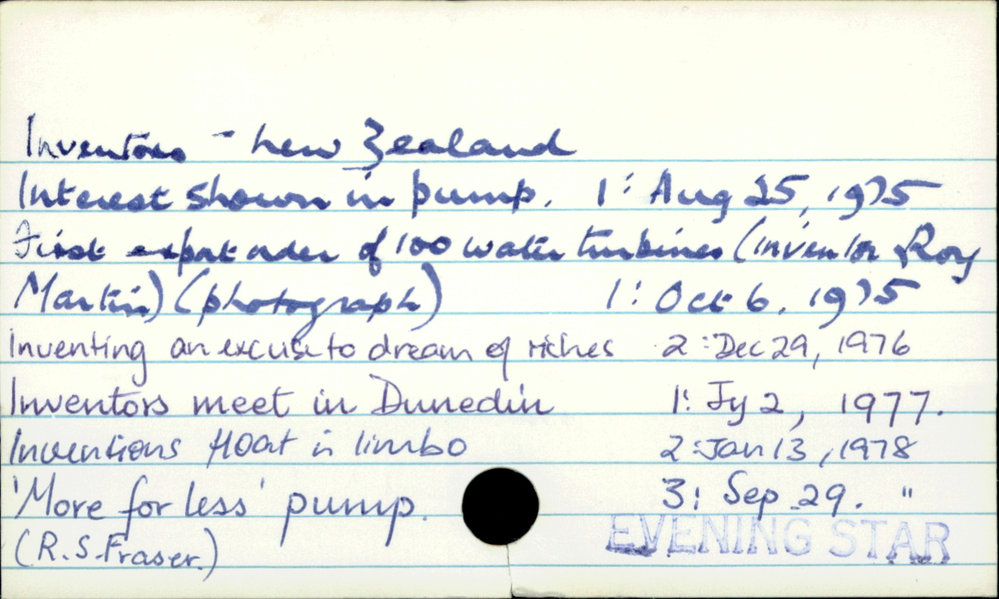 Inventors - New Zealand
Interest shown in pump. 1: Aug 25, 1975
First export order of 100 water turbines (inventor Roy
Martin) (photograph) 1: Oct 6, 1975
Inventing an excuse to dream of riches 2: Dec 29, 1976
Inventors meet in Dunedin 1: Jy 2, 1977.
Inventions float in limbo 2: Jan 13, 1978
'More for less' pump. 3: Sep 29. "
(R.S. Fraser.)
EVENING STAR